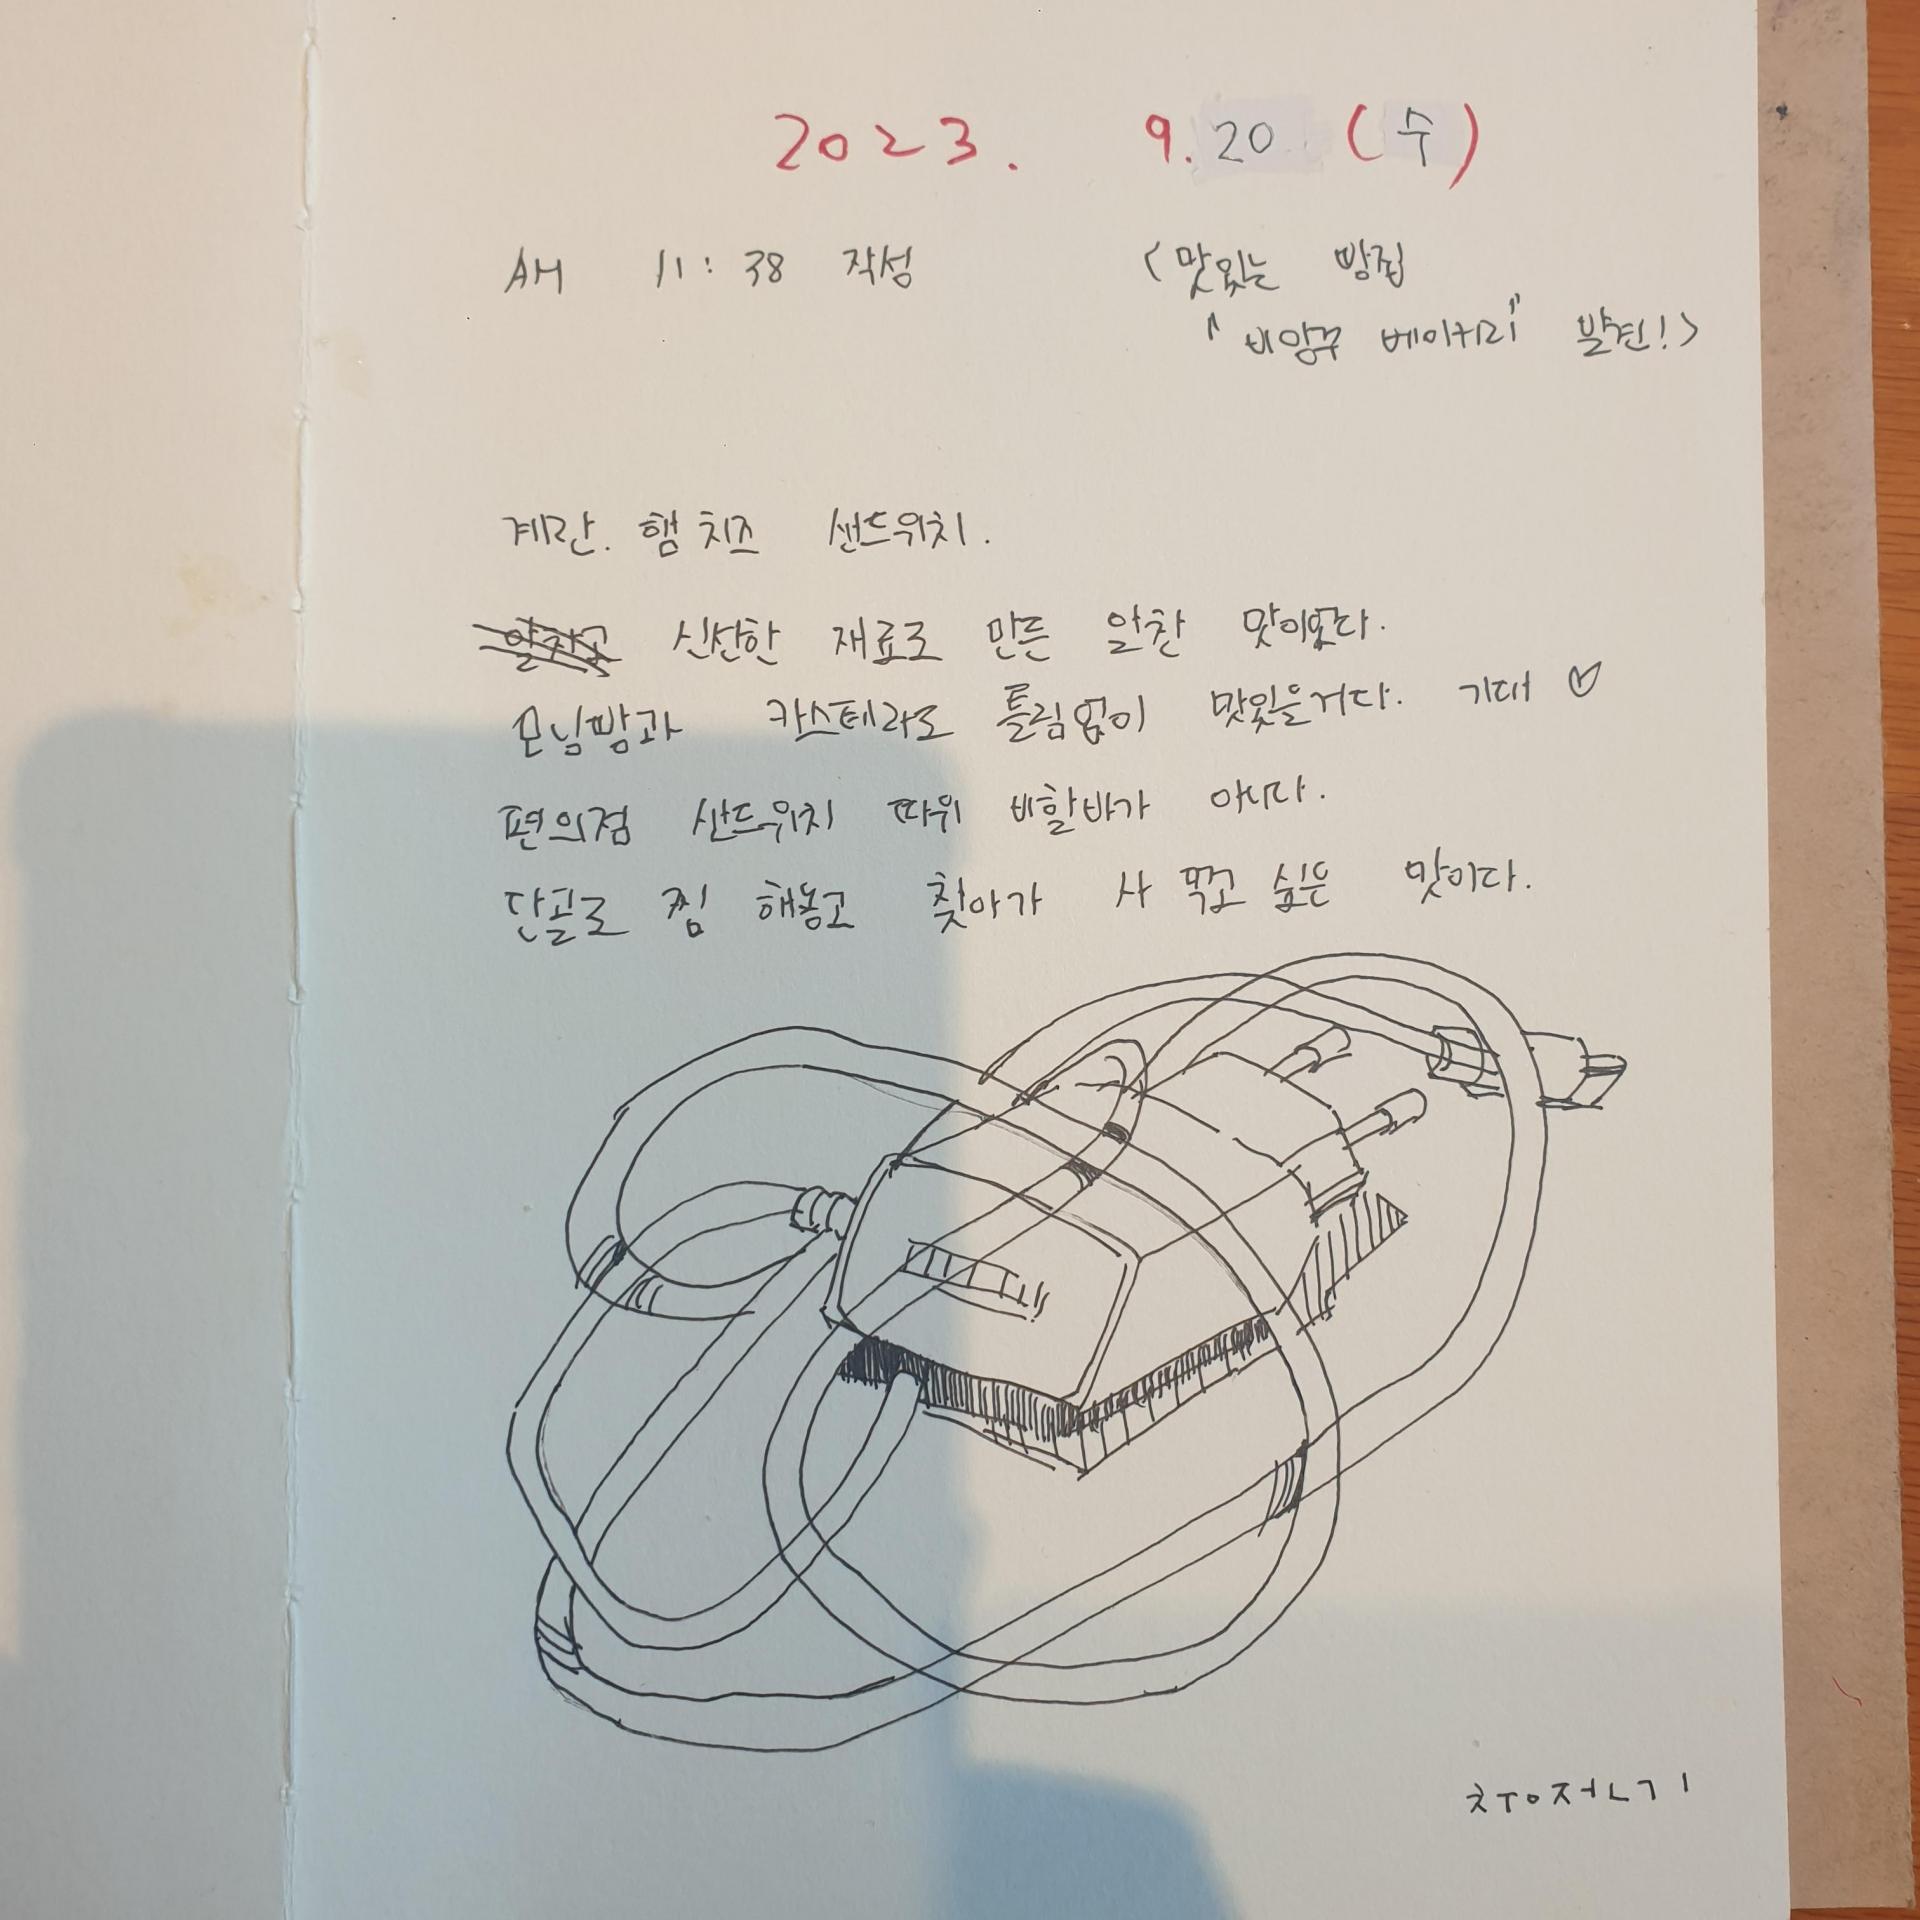 2023. 9.20 (수)
AM 11:38 작성
<맛있는 빵집
"비앙꾸 베이커리" 발견!>
계란. 햄 치즈 샌드위치.
알차고 신선한 재료로 만든 알찬 맛이었다.
모닝빵과 카스테라도 틀림없이 맛있을거다. 기대 ♡
편의점 샌드위치 따위 비할바가 아니다.
단골로 찜 해놓고 찾아가 사 먹고 싶은 맛이다.
ㅊㅜㅇㅈㅓㄴㄱㅣ